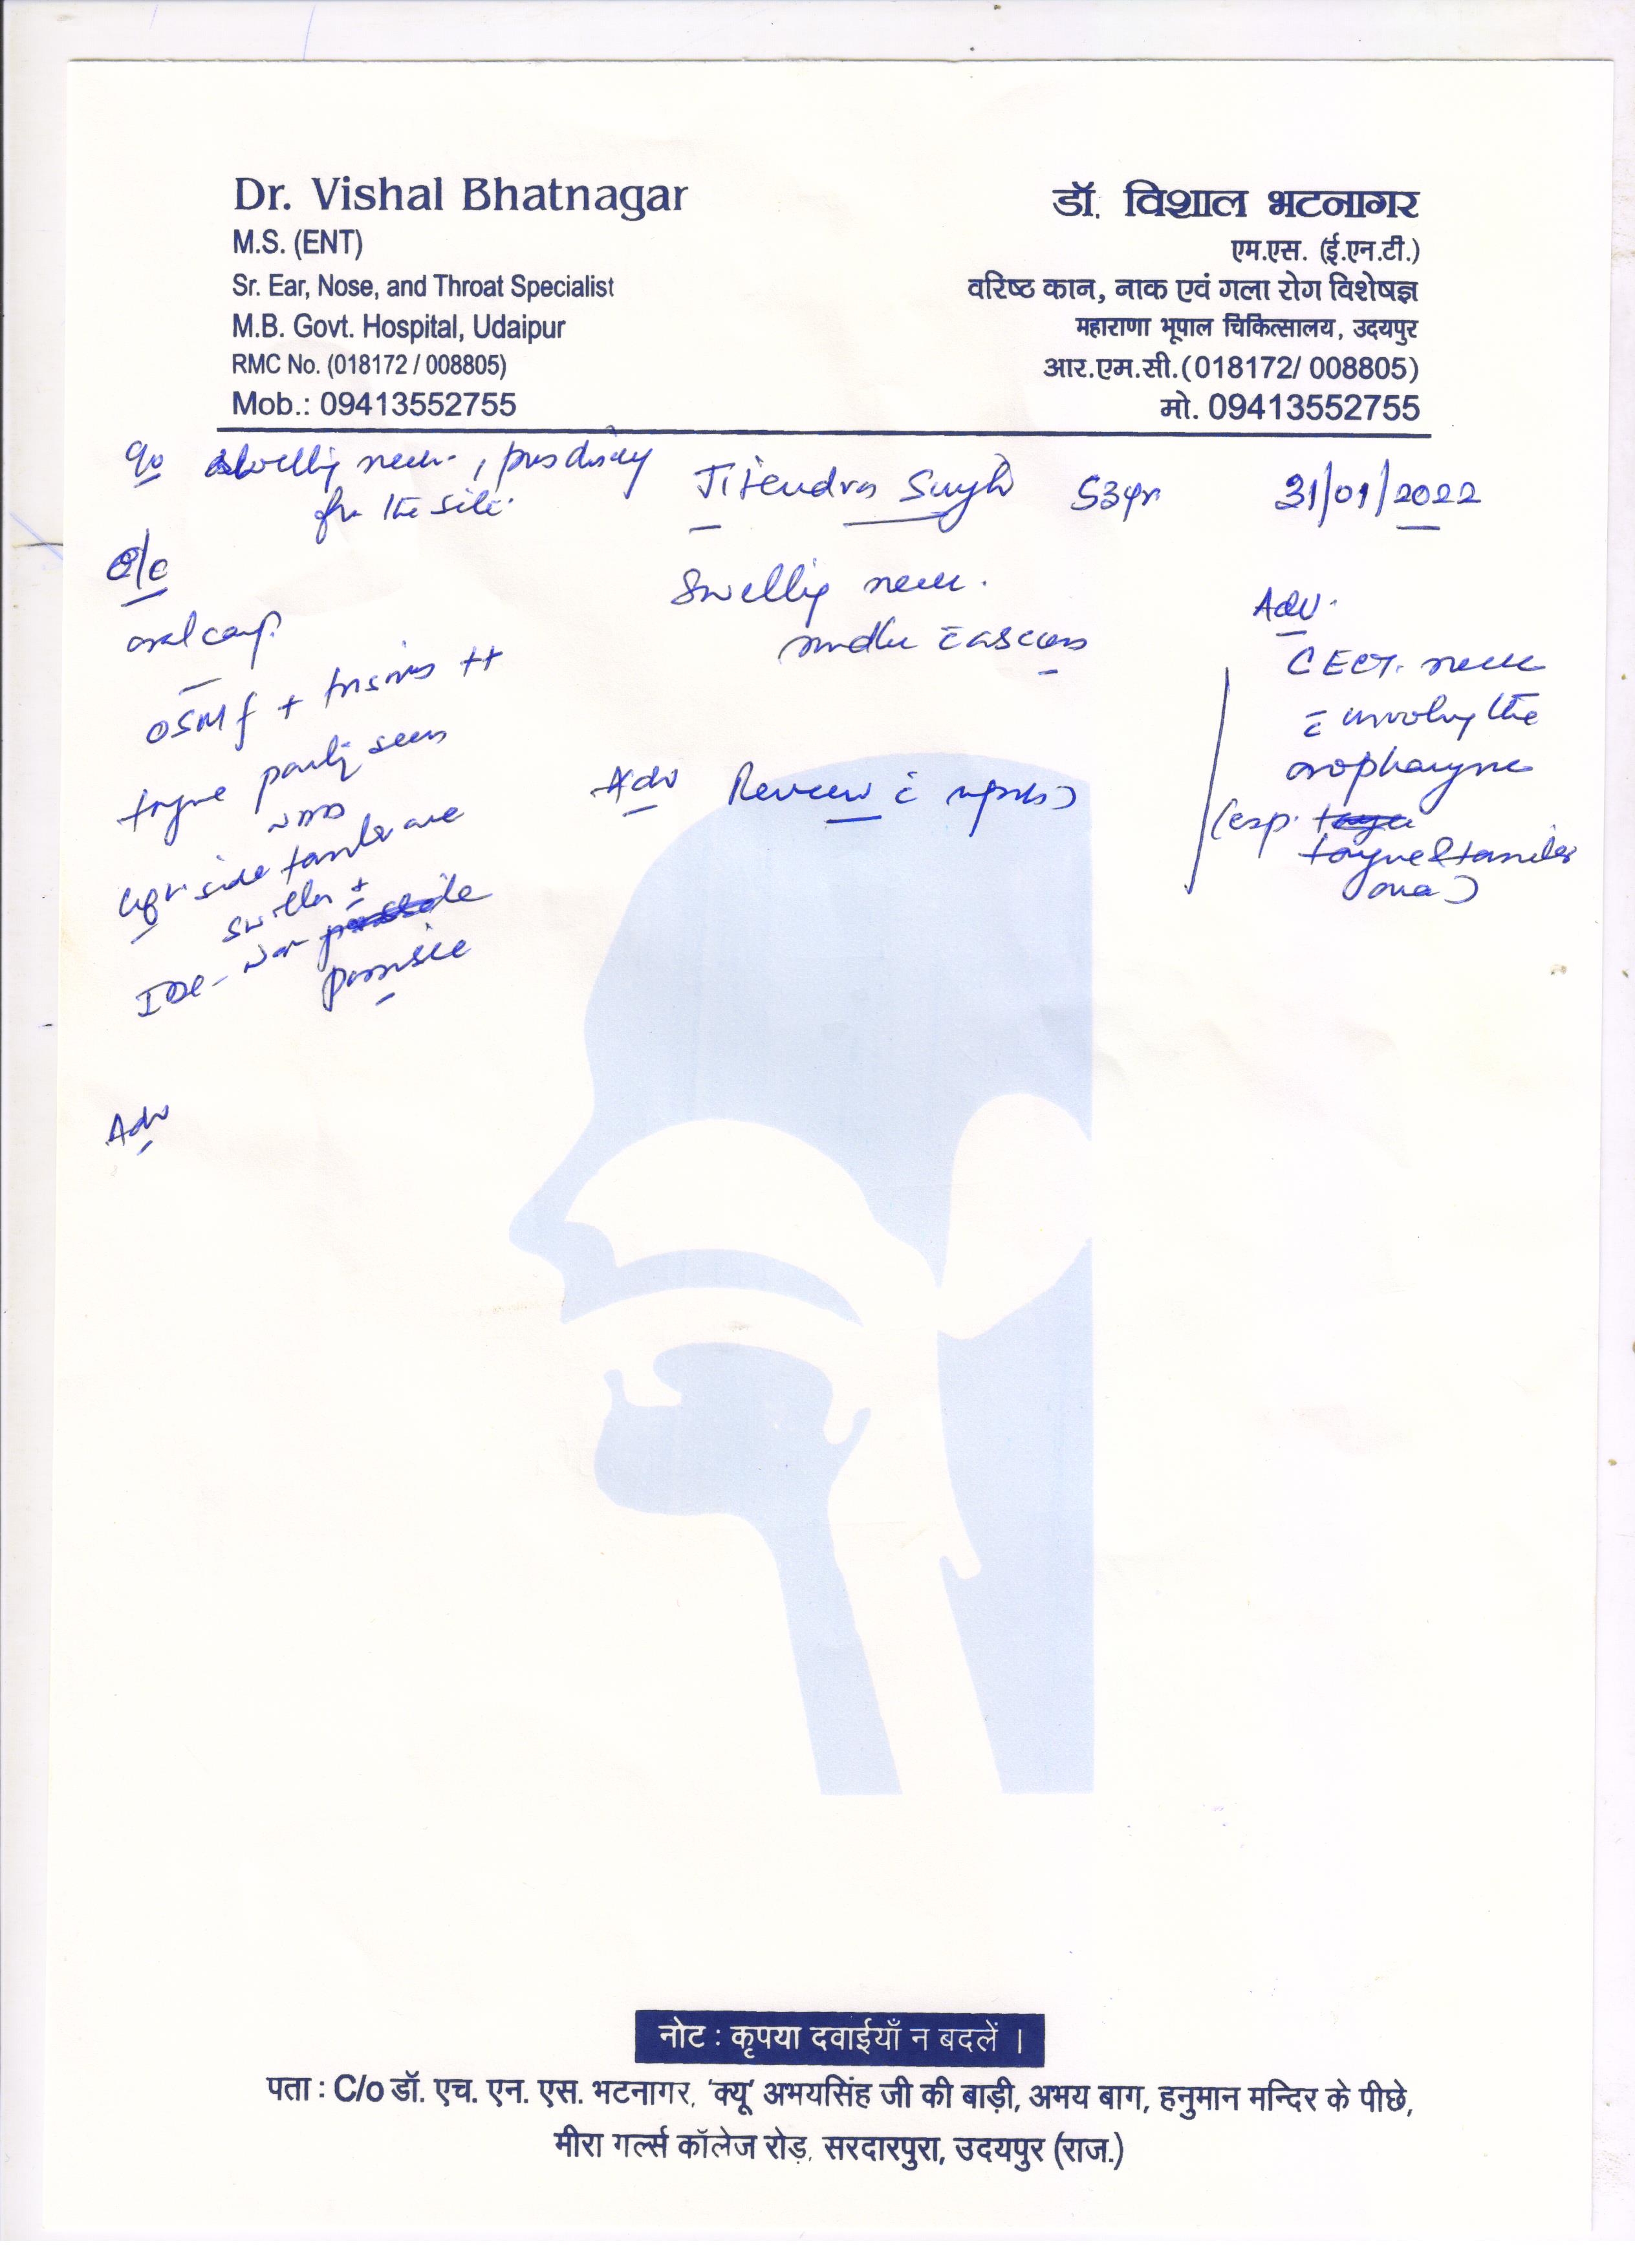 Dr. Vishal Bhatnagar
M.S. (ENT)
Sr. Ear, Nose, and Throat Specialist
M.B. Govt. Hospital, Udaipur
RMC No. (018172 / 008805)
Mob.: 09413552755
डॉ. विशाल भटनागर
एम.एस. (ई.एन.टी.)
वरिष्ठ कान, नाक एवं गला रोग विशेषज्ञ
महाराणा भूपाल चिकित्सालय, उदयपुर
आर.एम.सी.(018172/ 008805)
मो. 09413552755
Jitendra Singh 53yr 31/01/2022
swelling neck, pus
the site.
O/E
oral
OSMF + trismus ++
tongue seen
side
swelling ±
IDL -
Adv
Swelling neck.
Adv Review c̄ reports
Adv.
CECT. neck
c̄ involving the
oropharynx
(esp.
tongue & tonsillar
area)
नोट : कृपया दवाईयाँ न बदलें ।
पता : C/o डॉ. एच. एन. एस. भटनागर, 'क्यू' अभयसिंह जी की बाड़ी, अभय बाग, हनुमान मन्दिर के पीछे,
मीरा गर्ल्स कॉलेज रोड़, सरदारपुरा, उदयपुर (राज.)